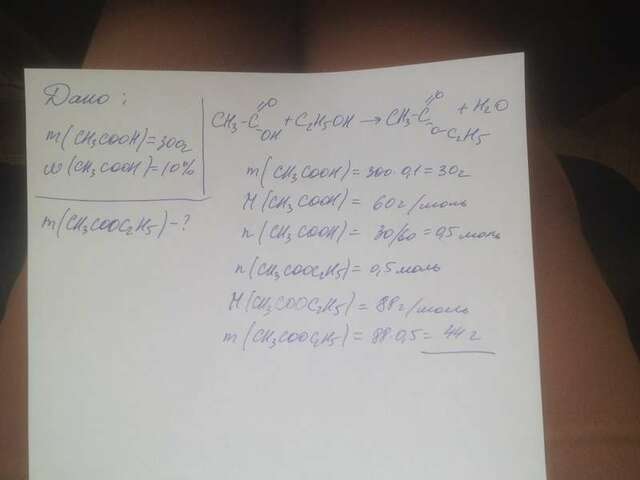 Дано:
m(CH₃COOH)=300г
ω(CH₃COOH)=10%
m(CH₃COOC₂H₅)-?
CH₃-C(=O)-OH + C₂H₅OH → CH₃-C(=O)-O-C₂H₅ + H₂O
m(CH₃COOH)=300·0,1=30г
M(CH₃COOH)=60г/моль
n(CH₃COOH)=30/60=0,5моль
n(CH₃COOC₂H₅)=0,5моль
M(CH₃COOC₂H₅)=88г/моль
m(CH₃COOC₂H₅)=88·0,5=44г